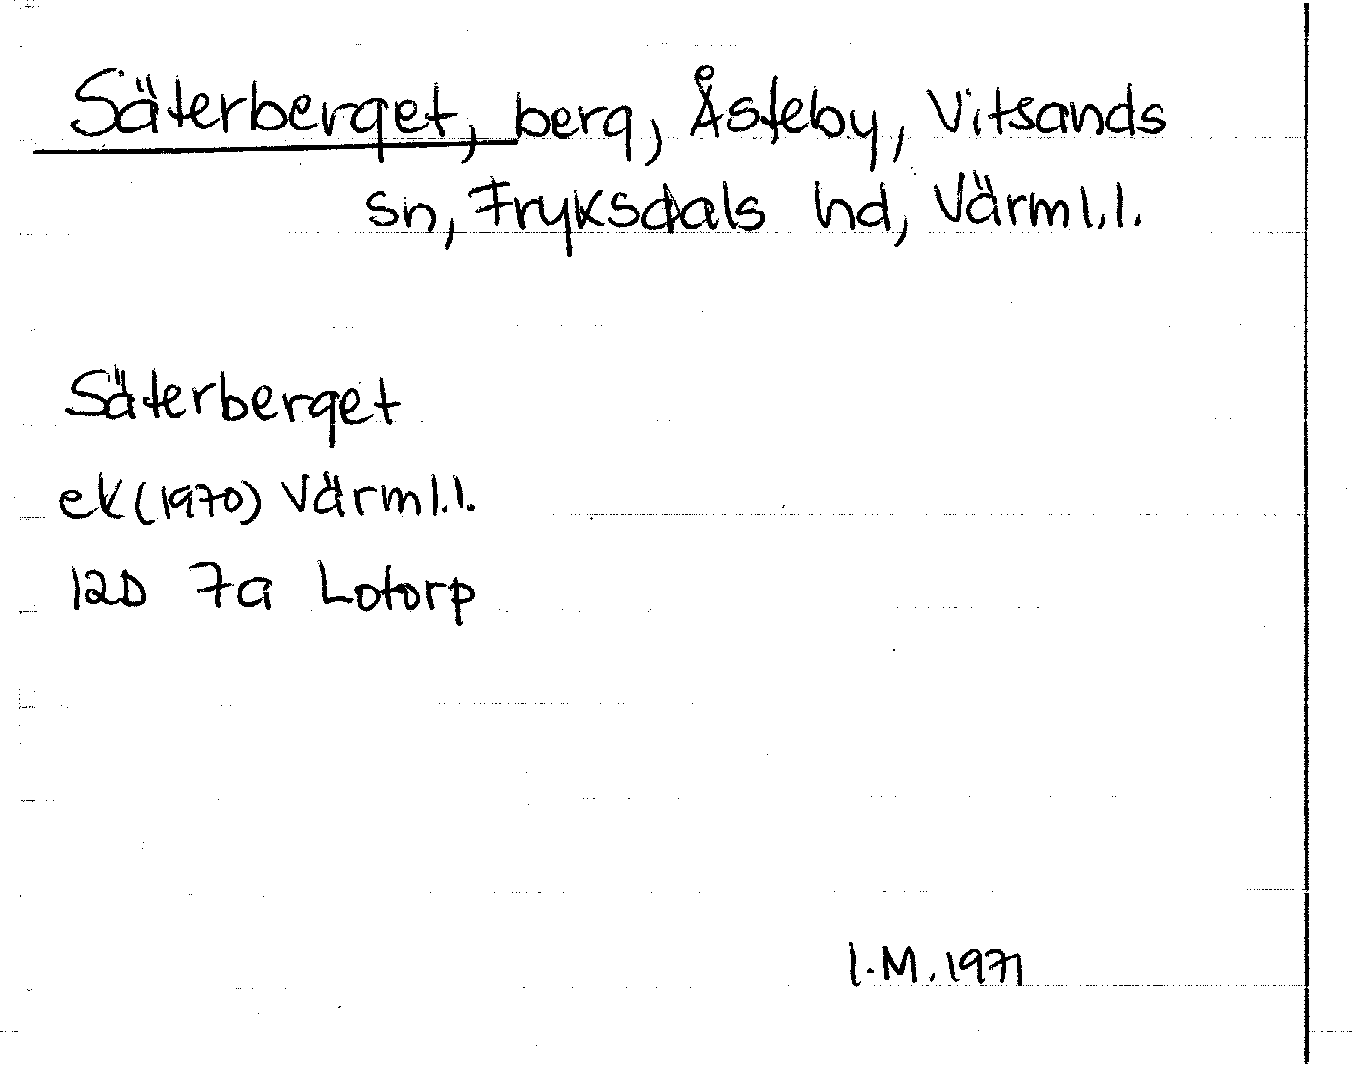 Säterberget, berg, Åsteby, Vitsands
sn, Fryksdals hd, Värml.l.
Säterberget
ek (1970) Värml.l.
12D 7a Lotorp
I.M. 1971